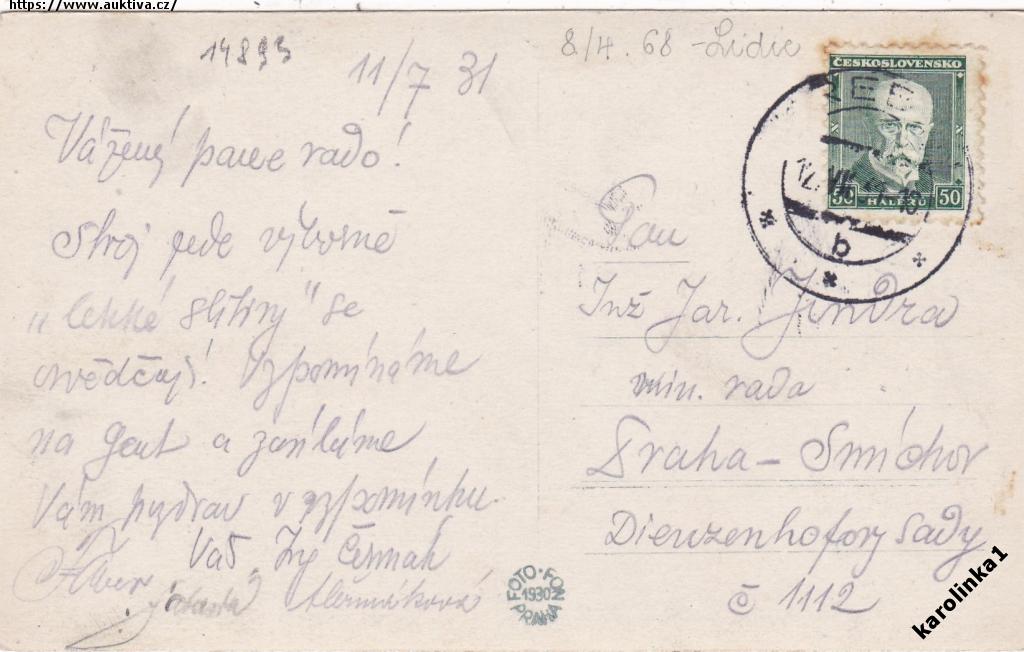 https://www.auktiva.cz/
14893
11/7 31
8/4. 68 - Lidic
Vážený pane rado!
Stroj jede výborně
„lehké slitiny" se
osvědčují! Vzpomínáme
na Gent a zasíláme
Vám pozdrav v vzpomínku
Váš Ing Čermák
Čermáková
ČESKOSLOVENSKO
50 HALÉŘŮ 50
b
Pan
Inž Jar. Jindra
min. rada
Praha - Smíchov
Dienzenhofory sady
č 1112
FOTO-FON
1930
PRAHA
karolinka1